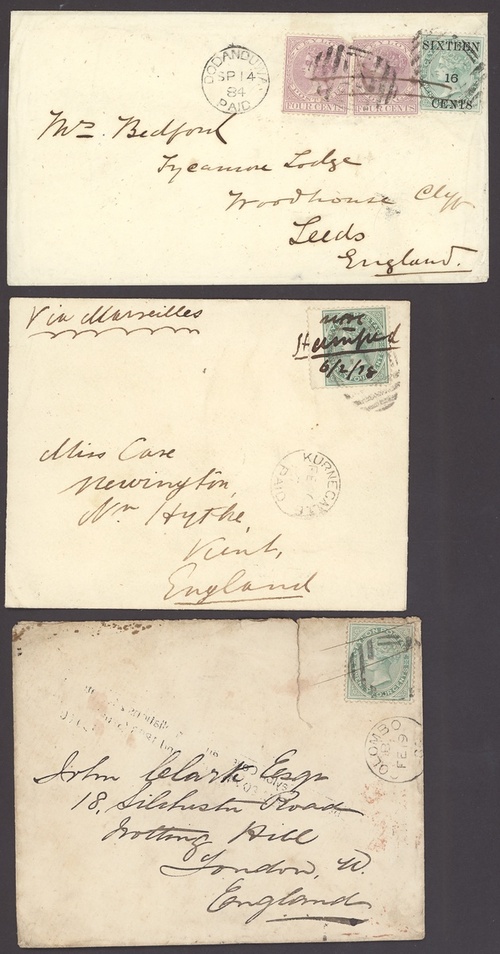 DODANDUWA
SP 14
84
PAID
FOUR CENTS
FOUR CENTS
SIXTEEN
16
CENTS
Mrs. Bedford
Sycamore Lodge
Woodhouse Cliff
Leeds
England.
Via Marseilles
now
stamped
6/2/78
KURNEGALLE
PAID
Miss Cave
Newington,
Nr Hythe,
Kent,
England
COLOMBO
FE 9
John Clark Esqr
18, Silchester Road
Notting Hill
London, W.
England